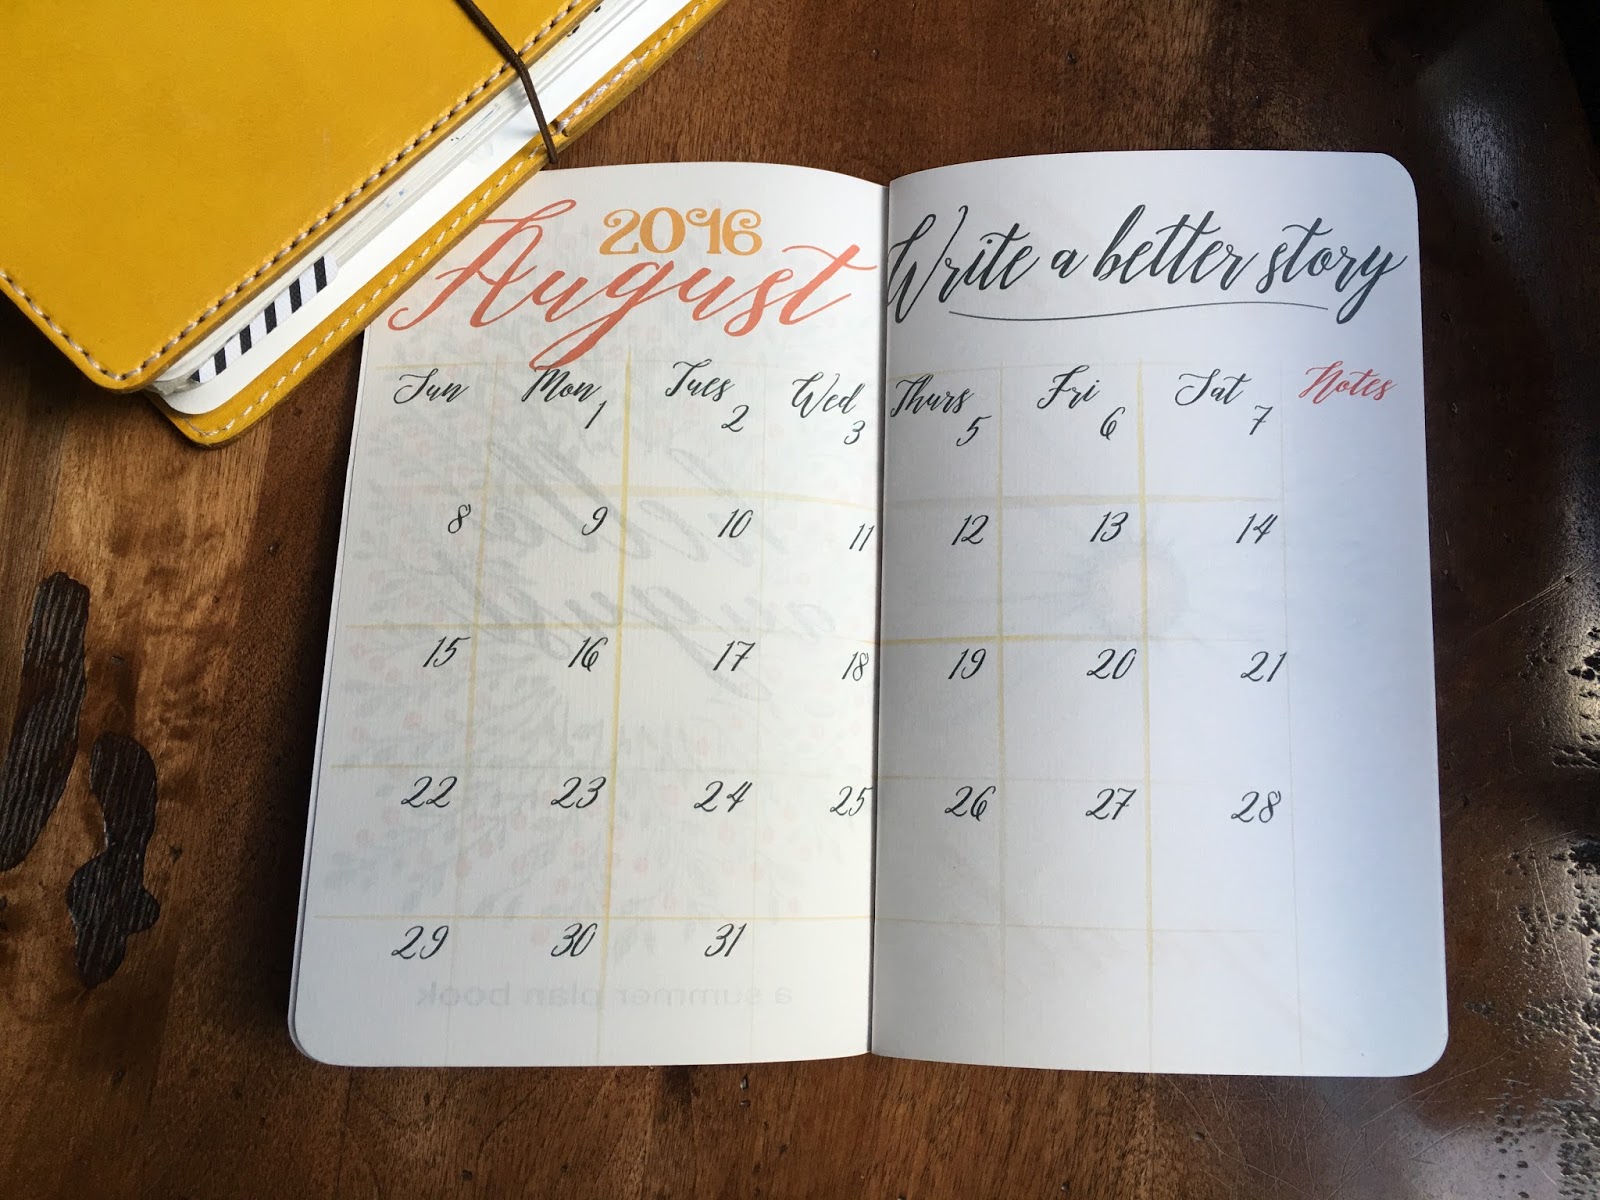 2016
August
Write a better story
Sun Mon Tues Wed Thurs Fri Sat Notes
1 2 3 5 6 7
8 9 10 11 12 13 14
15 16 17 18 19 20 21
22 23 24 25 26 27 28
29 30 31
hello
august
a summer plan book